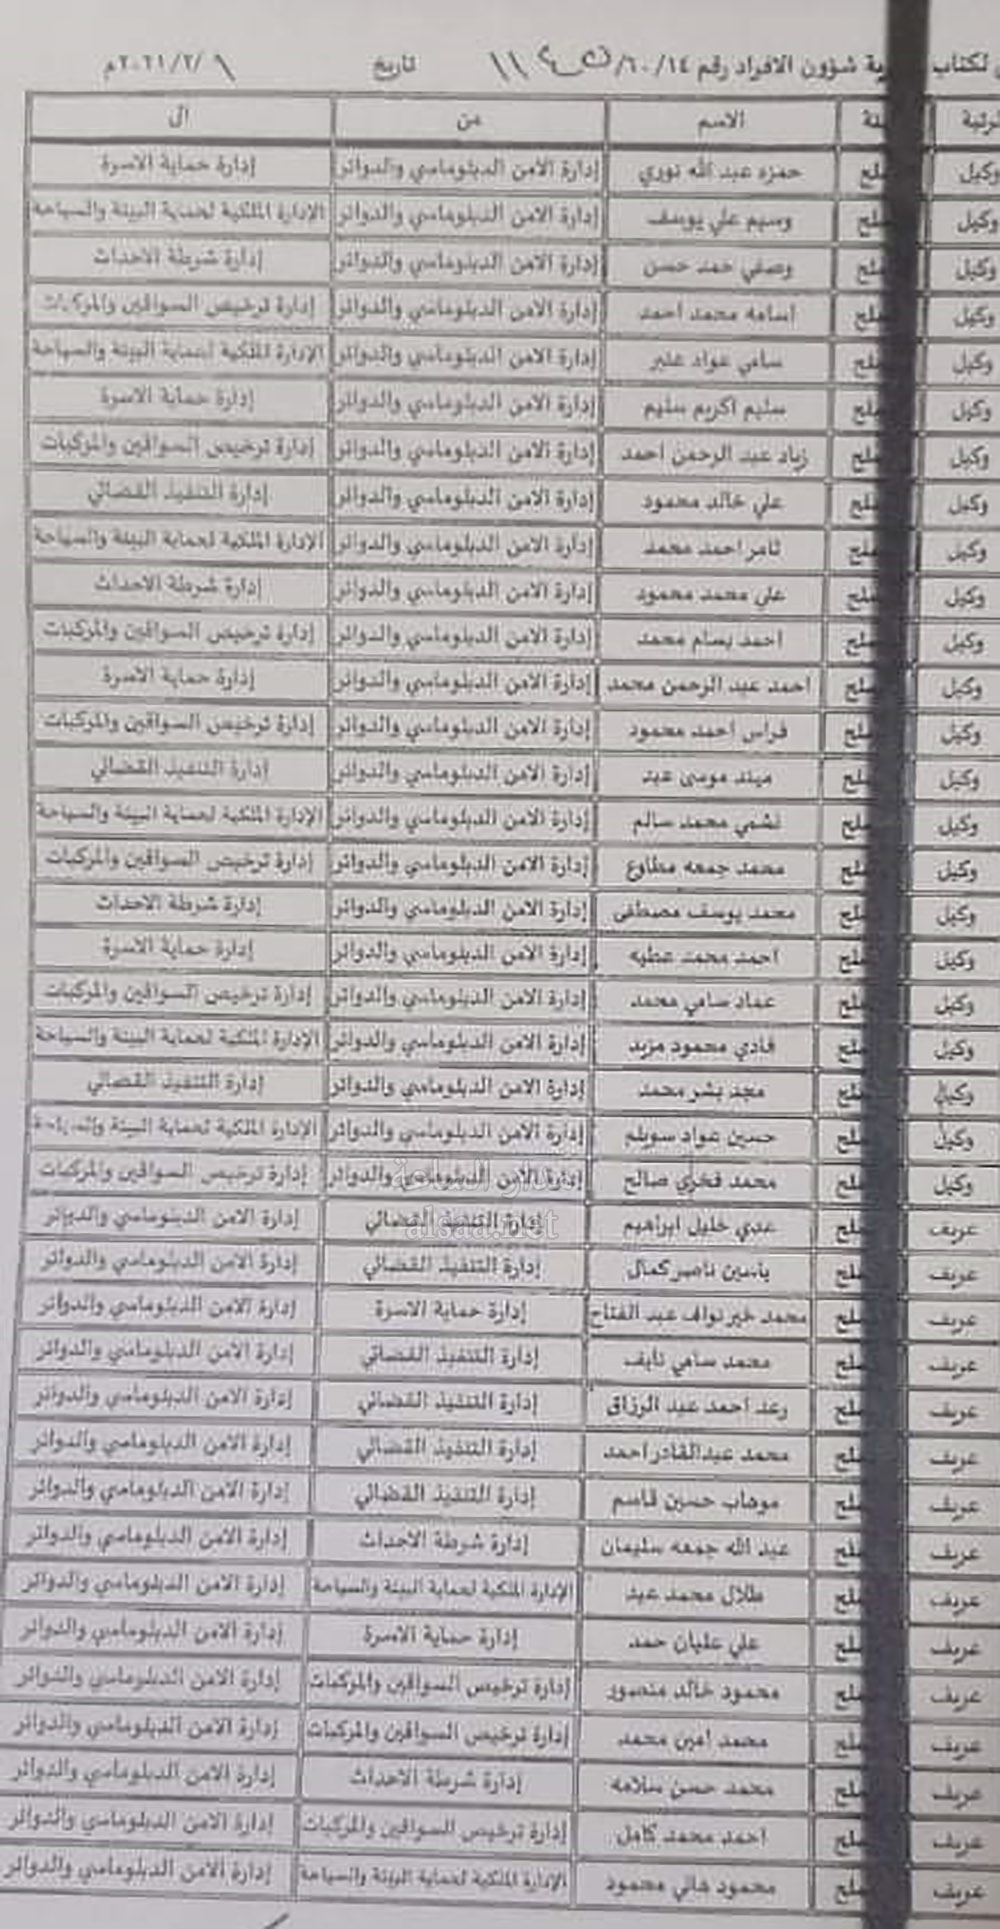 لكتاب ية شؤون الافراد رقم ٦٠/١٤/ تاريخ ٢٠٢١/٢/٩م
الاسم من الى
وكيل حمزه عبد الله نوري إدارة الامن الدبلوماسي والدوائر إدارة حماية الاسرة
وكيل وسيم علي يوسف إدارة الامن الدبلوماسي والدوائر الإدارة الملكية لحماية البيئة والسياحة
وكيل وصفي حمد حسن إدارة الامن الدبلوماسي والدوائر إدارة شرطة الاحداث
وكيل اسامه محمد احمد إدارة الامن الدبلوماسي والدوائر إدارة ترخيص السواقين والمركبات
وكيل سامي عواد إدارة الامن الدبلوماسي والدوائر الإدارة الملكية لحماية البيئة والسياحة
وكيل سليم اكريم سليم إدارة الامن الدبلوماسي والدوائر إدارة حماية الاسرة
وكيل زياد عبد الرحمن احمد إدارة الامن الدبلوماسي والدوائر إدارة ترخيص السواقين والمركبات
وكيل علي خالد محمود إدارة الامن الدبلوماسي والدوائر إدارة التنفيذ القضائي
وكيل ثامر احمد محمد إدارة الامن الدبلوماسي والدوائر الإدارة الملكية لحماية البيئة والسياحة
وكيل علي محمد محمود إدارة الامن الدبلوماسي والدوائر إدارة شرطة الاحداث
وكيل احمد بسام محمد إدارة الامن الدبلوماسي والدوائر إدارة ترخيص السواقين والمركبات
وكيل احمد عبد الرحمن محمد إدارة الامن الدبلوماسي والدوائر إدارة حماية الاسرة
وكيل فراس احمد محمود إدارة الامن الدبلوماسي والدوائر إدارة ترخيص السواقين والمركبات
وكيل موسى عيد إدارة الامن الدبلوماسي والدوائر إدارة التنفيذ القضائي
وكيل نشمي محمد سالم إدارة الامن الدبلوماسي والدوائر الإدارة الملكية لحماية البيئة والسياحة
وكيل محمد جمعه مطاوع إدارة الامن الدبلوماسي والدوائر إدارة ترخيص السواقين والمركبات
وكيل محمد يوسف مصطفى إدارة الامن الدبلوماسي والدوائر إدارة شرطة الاحداث
وكيل احمد محمد عطيه إدارة الامن الدبلوماسي والدوائر إدارة حماية الاسرة
وكيل عماد سامي محمد إدارة الامن الدبلوماسي والدوائر إدارة ترخيص السواقين والمركبات
وكيل فادي محمود مزيد إدارة الامن الدبلوماسي والدوائر الإدارة الملكية لحماية البيئة والسياحة
وكيل مجد بشر محمد إدارة الامن الدبلوماسي والدوائر إدارة التنفيذ القضائي
وكيل حسين عواد سويلم إدارة الامن الدبلوماسي والدوائر الإدارة الملكية لحماية البيئة والسياحة
وكيل محمد فخري صالح إدارة الامن الدبلوماسي والدوائر إدارة ترخيص السواقين والمركبات
عريف عدي خليل ابراهيم إدارة التنفيذ القضائي إدارة الامن الدبلوماسي والدوائر
alsaa.net
عريف ياسين ناصر كمال إدارة التنفيذ القضائي إدارة الامن الدبلوماسي والدوائر
عريف محمد خير نواف عبد الفتاح إدارة حماية الاسرة إدارة الامن الدبلوماسي والدوائر
عريف محمد سامي نايف إدارة التنفيذ القضائي إدارة الامن الدبلوماسي والدوائر
عريف رعد احمد عبد الرزاق إدارة التنفيذ القضائي إدارة الامن الدبلوماسي والدوائر
عريف محمد عبدالقادر احمد إدارة التنفيذ القضائي إدارة الامن الدبلوماسي والدوائر
عريف موهاب حسين قاسم إدارة التنفيذ القضائي إدارة الامن الدبلوماسي والدوائر
عريف عبد الله جمعه سليمان إدارة شرطة الاحداث إدارة الامن الدبلوماسي والدوائر
عريف طلال محمد عيد الإدارة الملكية لحماية البيئة والسياحة إدارة الامن الدبلوماسي والدوائر
عريف علي عليان حمد إدارة حماية الاسرة إدارة الامن الدبلوماسي والدوائر
عريف محمود خالد منصور إدارة ترخيص السواقين والمركبات إدارة الامن الدبلوماسي والدوائر
عريف محمد امين محمد إدارة ترخيص السواقين والمركبات إدارة الامن الدبلوماسي والدوائر
عريف محمد حسن سلامه إدارة شرطة الاحداث إدارة الامن الدبلوماسي والدوائر
عريف احمد محمد كامل إدارة ترخيص السواقين والمركبات إدارة الامن الدبلوماسي والدوائر
عريف محمود هاني محمود الإدارة الملكية لحماية البيئة والسياحة إدارة الامن الدبلوماسي والدوائر